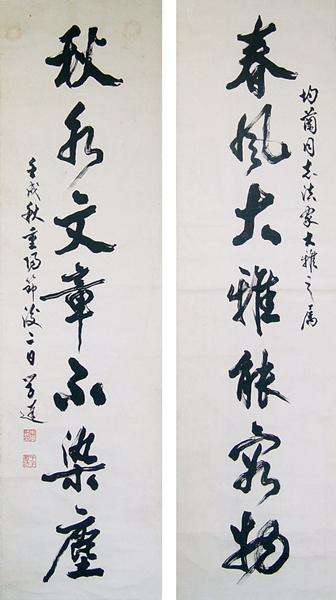 同志法家大雅之属
春风大雅能容物
秋水文章不染塵
壬戌秋重陽節後二日